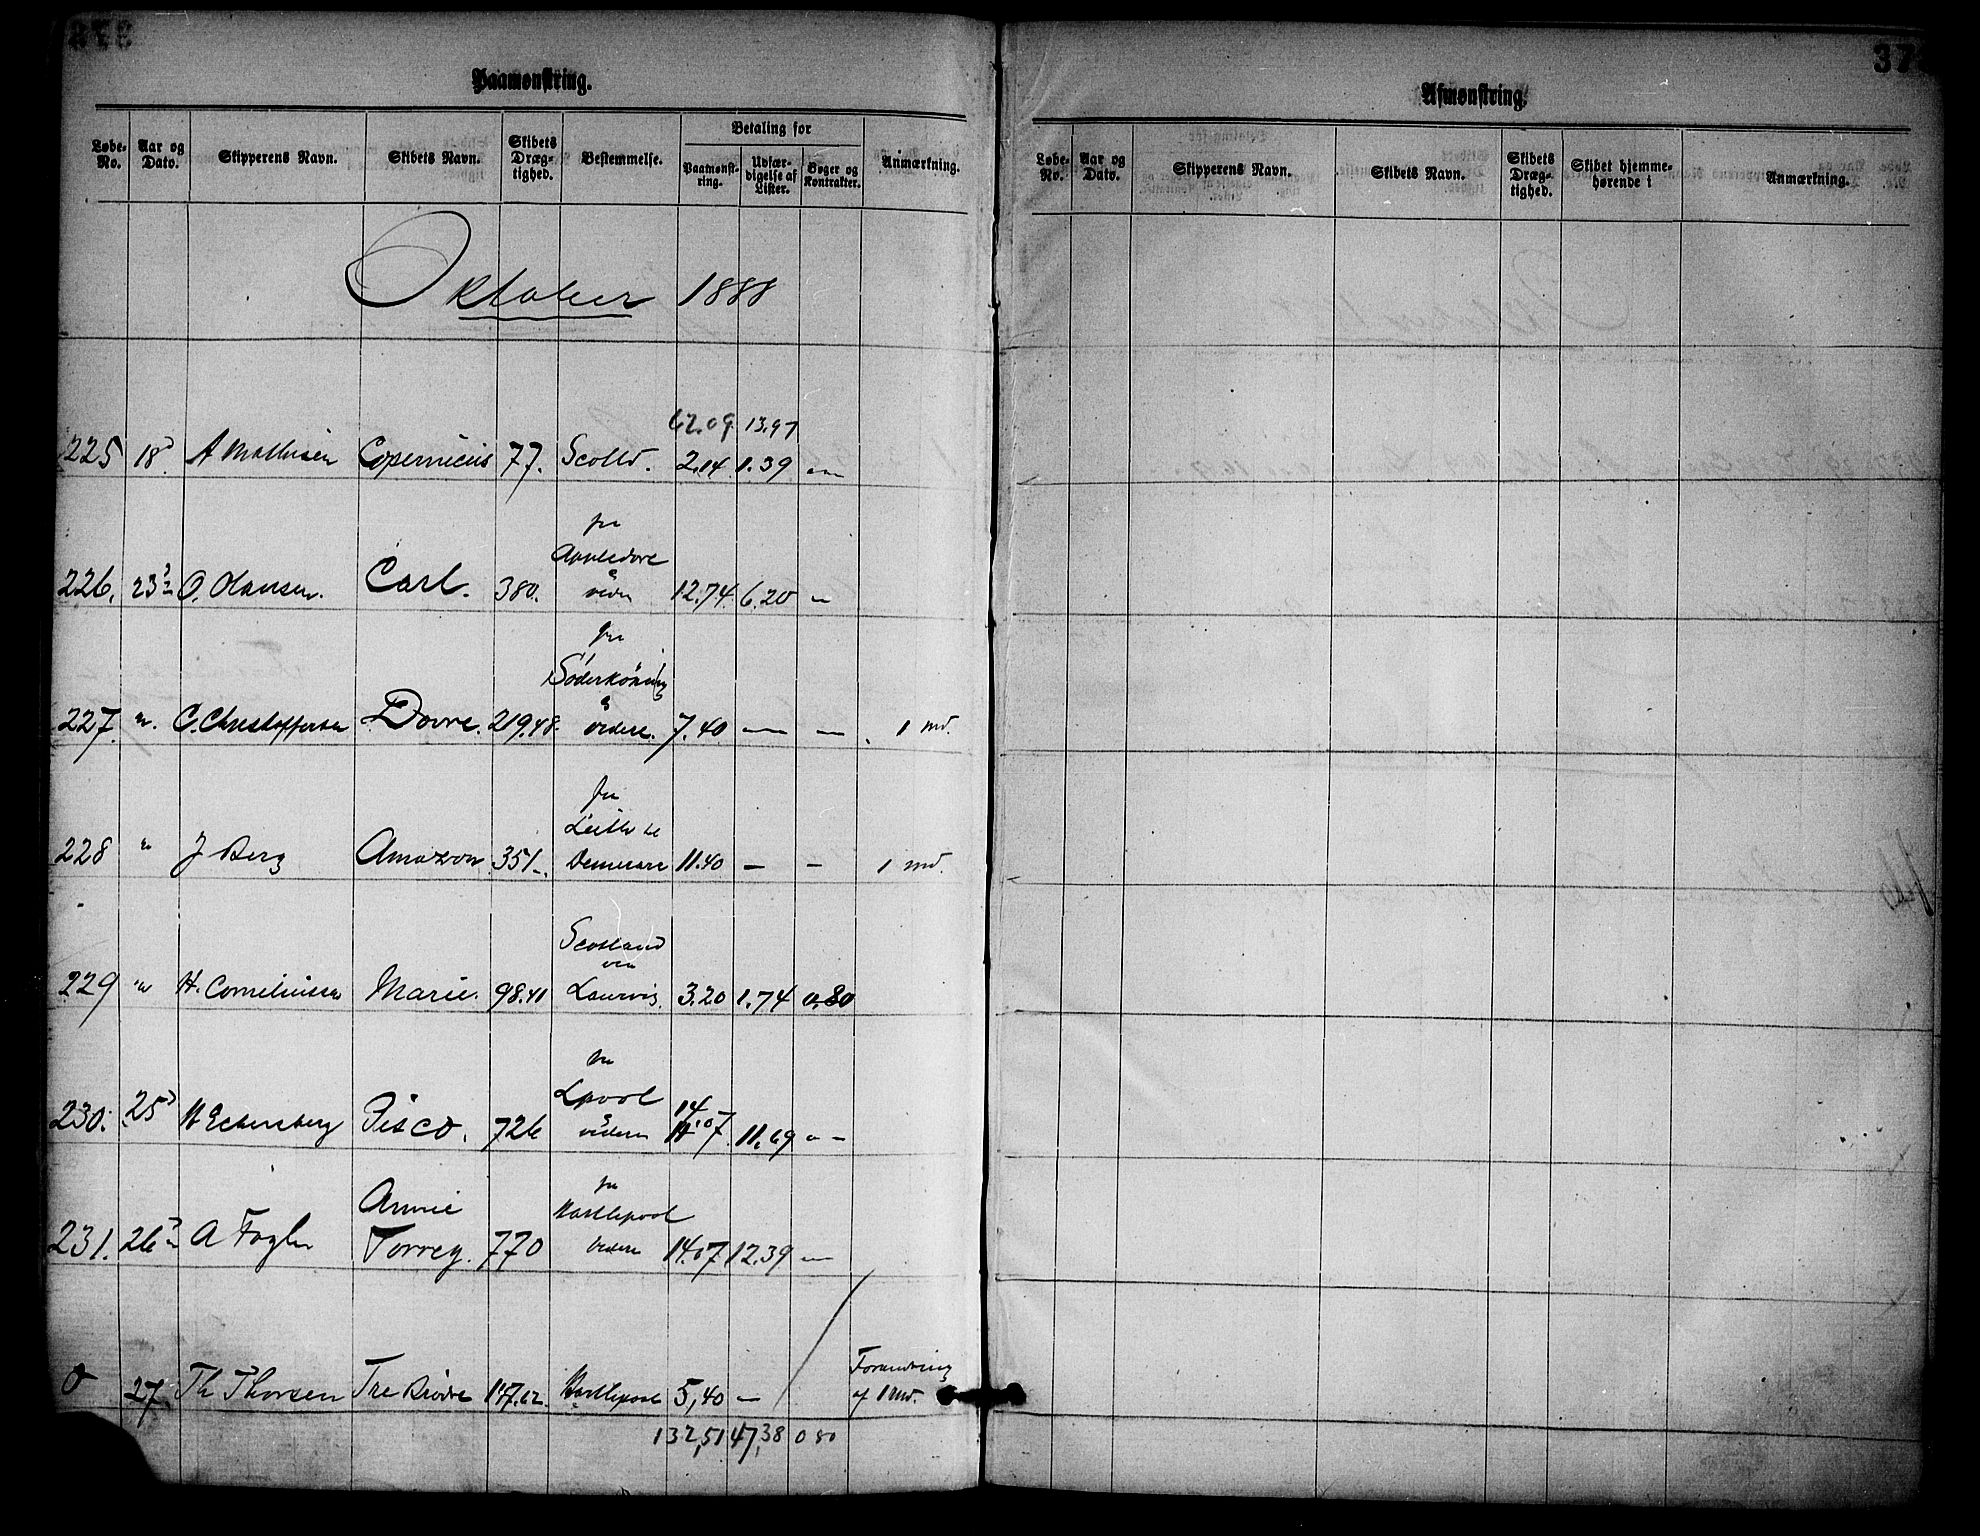 37
Paamønstring.
Løbe-No. Aar og Dato. Skipperens Navn. Skibets Navn. Skibets Dræg-tighed. Bestemmelse. Betaling for Paamønst-ring. Udfær-digelse af Lister. Bøger og Kontrakter. Anmærkning.
Oktober 1888
62.09 13.97
225 18 A Mathisen Copernicus 77. Scotld. 2.14 1.39 —
fra
Appledore
226. 23 O. Hansen. Carl. 380. 12.74 6.20 —
fra
Söderköping
227. " C. Christoffersen Dovre. 219.48. videre. 7.40 — — 1 Md.
fra
Leith til
228 " J Berg Amazon 351. Demerara 11.40 — — 1 Md.
Scotland
via
229 " H. Corneliussen Marie. 98.41 Laurvig. 3.20 1.74 0.80
fra
Lpool
230. 25 Pisco. 726 videre 14.07 11.69 —
fra
Annie Hartlepool
231. 26 A Fogler Torrey. 770 videre 14.07 12.39 —
Forandring
0 27. Th Thorsen Tre Brødre 147.62. Hartlepool 5,40 — af 1 Md.
132,51 47,38 0 80
Afmønstring.
Løbe-No. Aar og Dato. Skipperens Navn. Skibets Navn. Skibets Dræg-tighed. Skibet hjemme-hørende i Anmærkning.